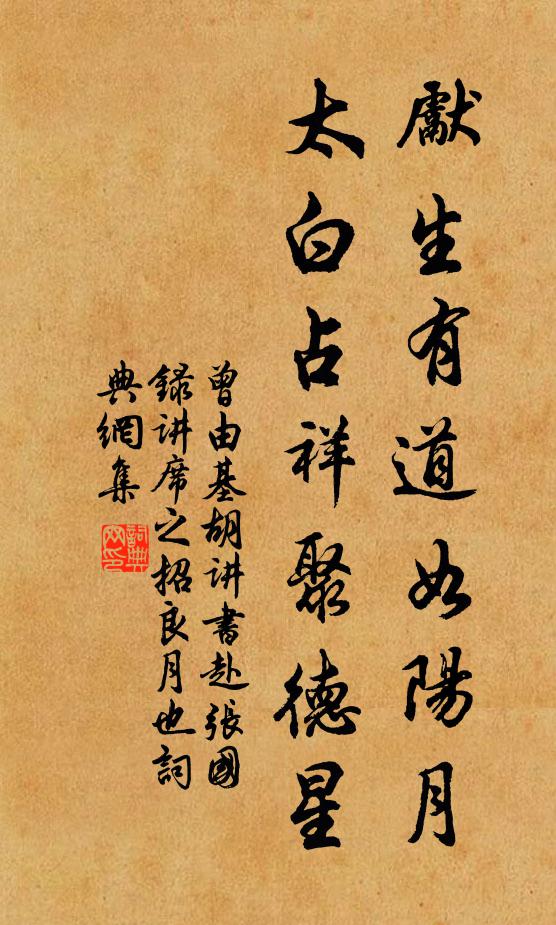 獻生有道如陽月
太白占祥聚德星
曾由基胡讲書赴張國
錄讲席之招良月也詞
典網集
詞典
网印